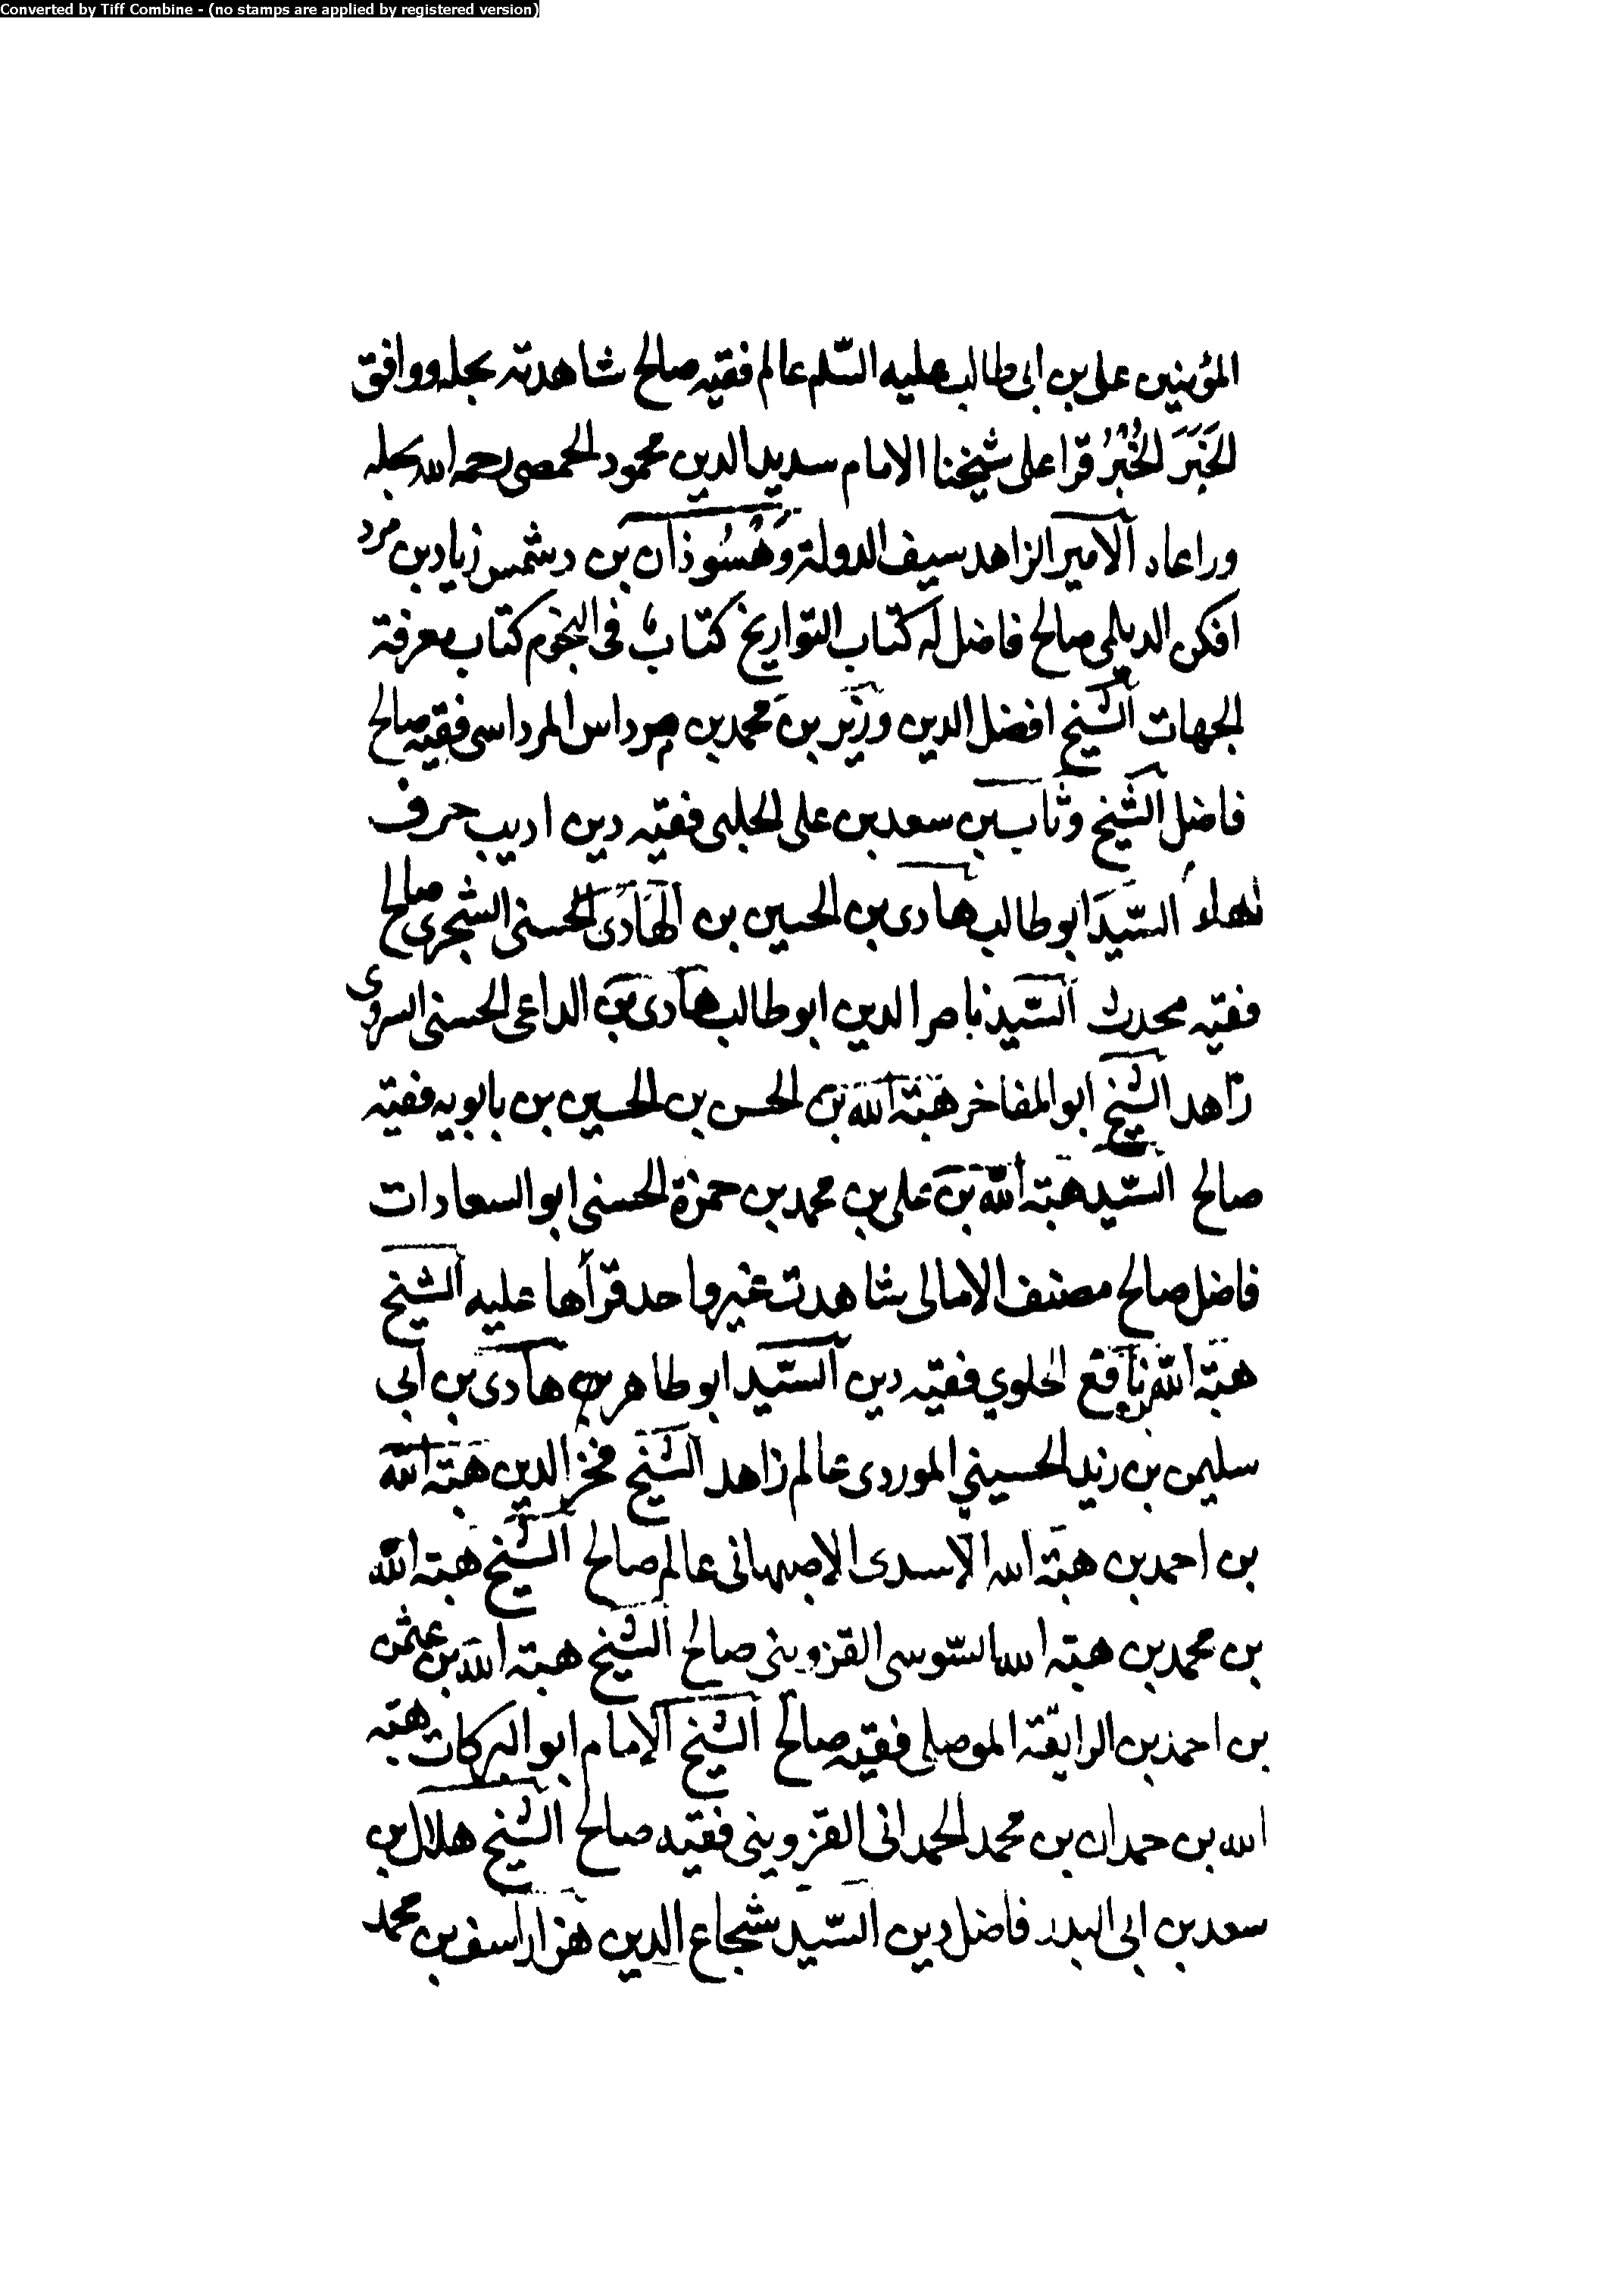 Converted by Tiff Combine - (no stamps are applied by registered version)
المؤمنين على بن ابى طالب عليه السّلم عالم فقيه صالح شاهدته بحلة ووافق
الخَبَرَ الخُبْرُ قرا على شيخنا الامام سديد الدين محمود الحمصى رحمه الله بحلة
وراعاه الامير الزاهد سيف الدولة وَهْسُوذان بن دشمن زياد بن مرد
افكن الديلمى صالح فاضل له كتاب التواريخ كتاب فى النجوم كتاب معرفة
الجهات الشيخ افضل الدين وزير بن محمد بن مرداس المرداسى فقيه صالح
فاضل الشيخ وثاب بن سعد بن على الحلبى فقيه دين اديب حرف
الهاء السّيد ابو طالب هادى بن الحسين بن الهادى الحسنى الشجرى صالح
فقيه محدث السّيد ناصر الدين ابو طالب هادى بن الداعى الحسنى السروى
زاهد الشيخ ابو المفاخر هبة الله بن الحسن بن الحسين بن بابويه فقيه
صالح السّيد هبة الله بن على بن محمد بن حمزة الحسنى ابو السعادات
فاضل صالح مصنف الامالى شاهدت غير واحد قرأها عليه الشيخ
هبة الله نافع الحلوي فقيه دين السّيد ابو طاهر بن هادى بن ابى
سليمن بن زيد الحسيني الموردى عالم زاهد الشيخ فخر الدين هبة الله
بن احمد بن هبة الله الاسدى الاصبهانى عالم صالح الشيخ هبة الله
بن محمد بن هبة الله السّوسى القزوينى صالح الشيخ هبة الله بن عثمن
بن احمد بن الرايقة الموصلى فقيه صالح الشيخ الامام ابو البركات هبة
الله بن حمدان بن محمد الحمدانى القزوينى فقيه صالح الشيخ هلال بن
سعد بن ابى البدر فاضل دين السّيد شجاع الدين هزاراسف بن محمد